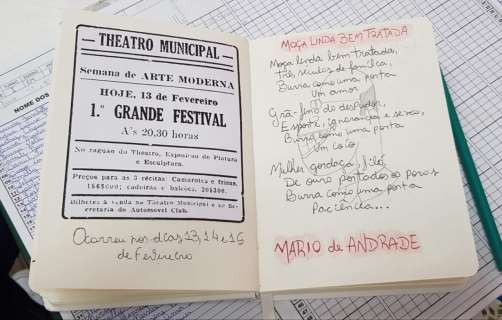 NOME DOS
— THEATRO MUNICIPAL —
Semana de ARTE MODERNA
HOJE, 13 de Fevereiro
1.º GRANDE FESTIVAL
A's 20,30 horas
No saguão do Theatro, Exposição de Pintura
e Esculptura.
Preços para as 3 récitas: Camarotes e frizas,
186$000; cadeiras e balcões, 20$200.
Bilhetes á venda no Theatro Municipal e na Se-
cretaria do Automovel Club.
Ocorreu nos dias 13, 14 e 15
de Fevereiro
MOÇA LINDA BEM TRATADA
Moça linda bem tratada,
Três séculos de família,
Burra como uma porta
Um amor.
Grã-fino do despudor,
Esporte, ignorância e sexo,
Burro como uma porta
Um coió.
Mulher gordaça, filó,
De ouro por todos os poros
Burra como uma porta
Paciência...
MARIO de ANDRADE